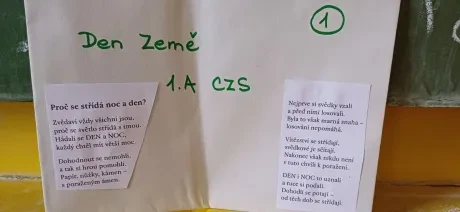 1
Den Země
1.A CZS
Proč se střídá noc a den?
Zvědaví vždy všichni jsou,
proč se světlo střídá s tmou.
Hádali se DEN a NOC,
každý chtěl mít větší moc.
Dohodnout se nemohli,
a tak si hrou pomohli.
Papír, nůžky, kámen –
a poraženým ámen.
Nejprve si svědky vzali
a před nimi losovali.
Byla to však marná snaha –
losování nepomáhá.
Vítězové se střídají,
svědkové je sčítají.
Nakonec však nikdo není
v tuto chvíli k poražení.
DEN i NOC to uznali
a ruce si podali.
Dohodli se potají –
od těch dob se střídají.